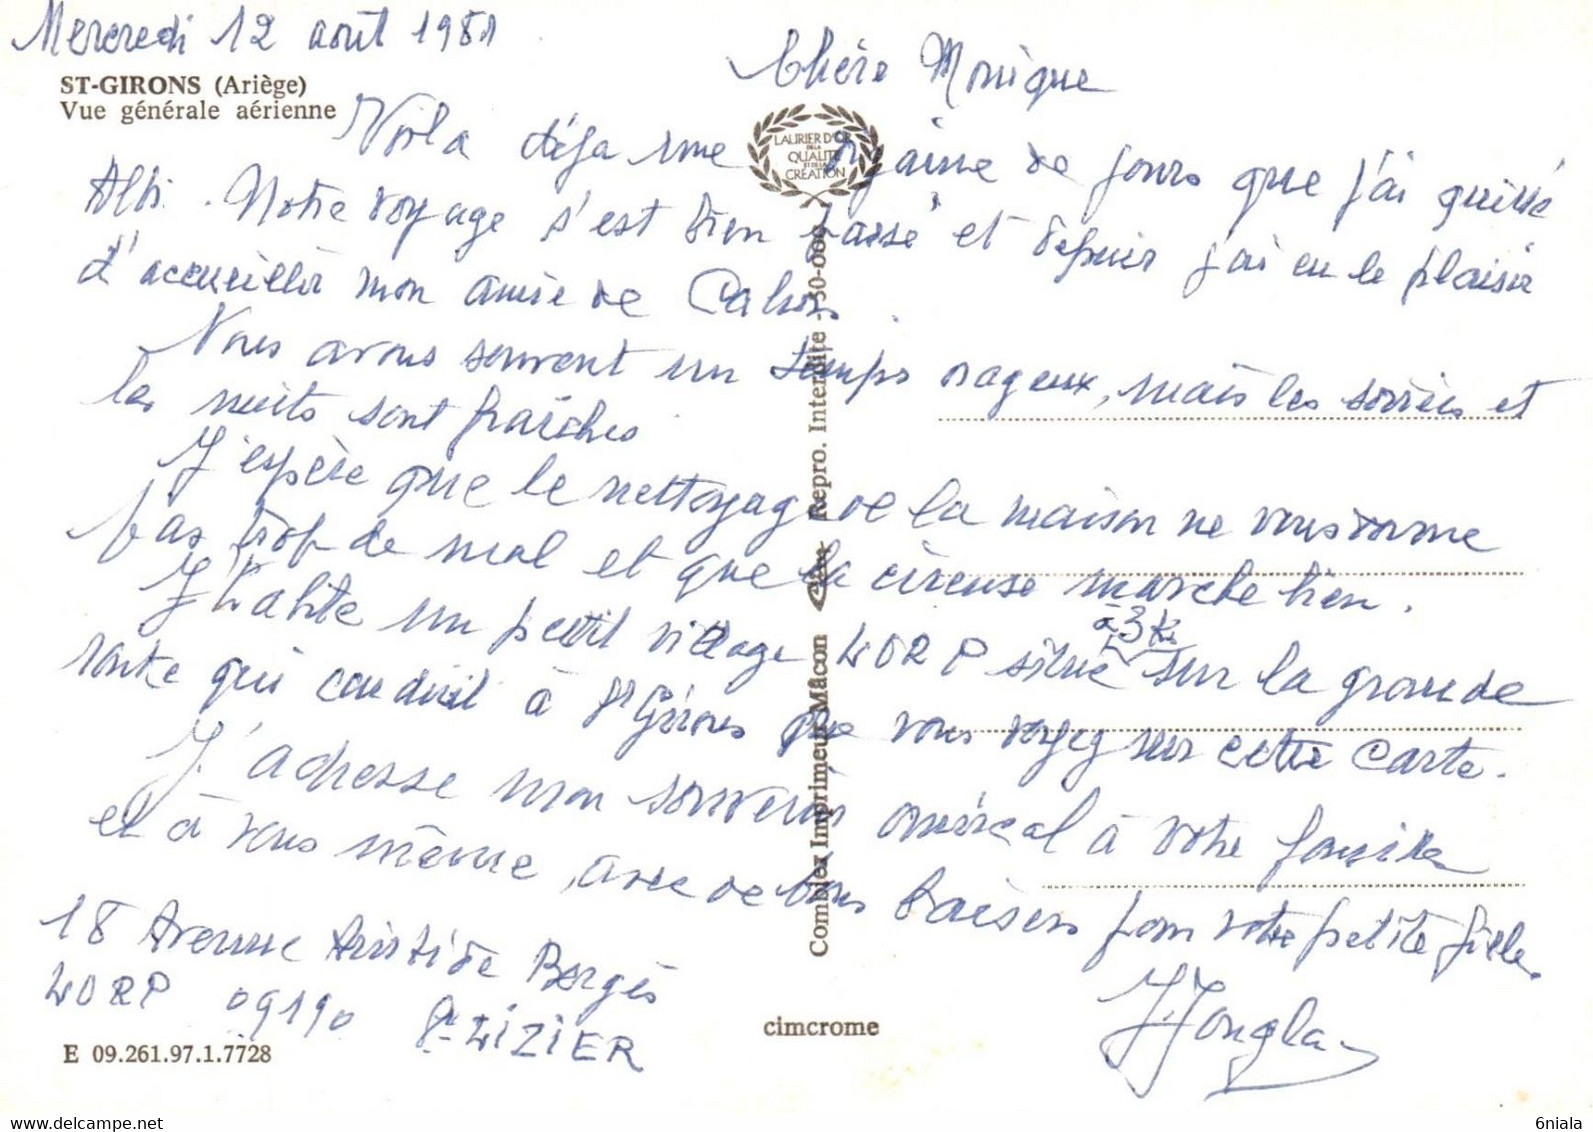 Mercredi 12 août 1981
ST-GIRONS (Ariège)
Vue générale aérienne
Chère Monique
Voilà déja une dizaine de jours que j'ai quitté
Albi. Notre voyage s'est bien passé et depuis j'ai eu le plaisir
d'accueillir mon amie de Cahors.
Nous avons souvent un temps orageux, mais les soirées et
les nuits sont fraîches
J'espère que le nettoyage de la maison ne vous donne
pas trop de mal et que la cireuse marche bien.
J'habite un petit village LORP situé à 3 km sur la grande
route qui conduit à St Girons que vous voyez sur cette carte.
J'adresse mon souvenir amical à votre famille
et à vous même, avec de bons baisers pour votre petite fille.
18 Avenue Aristide Bergès
LORP 09190 St LIZIER
J Jongla
LAURIER D'OR
DE LA
QUALITÉ
ET DE LA
CRÉATION
Combier Imprimeur Mâcon
Repro. Interdite - 30-000
cimcrome
E 09.261.97.1.7728
delcampe.net
6niala